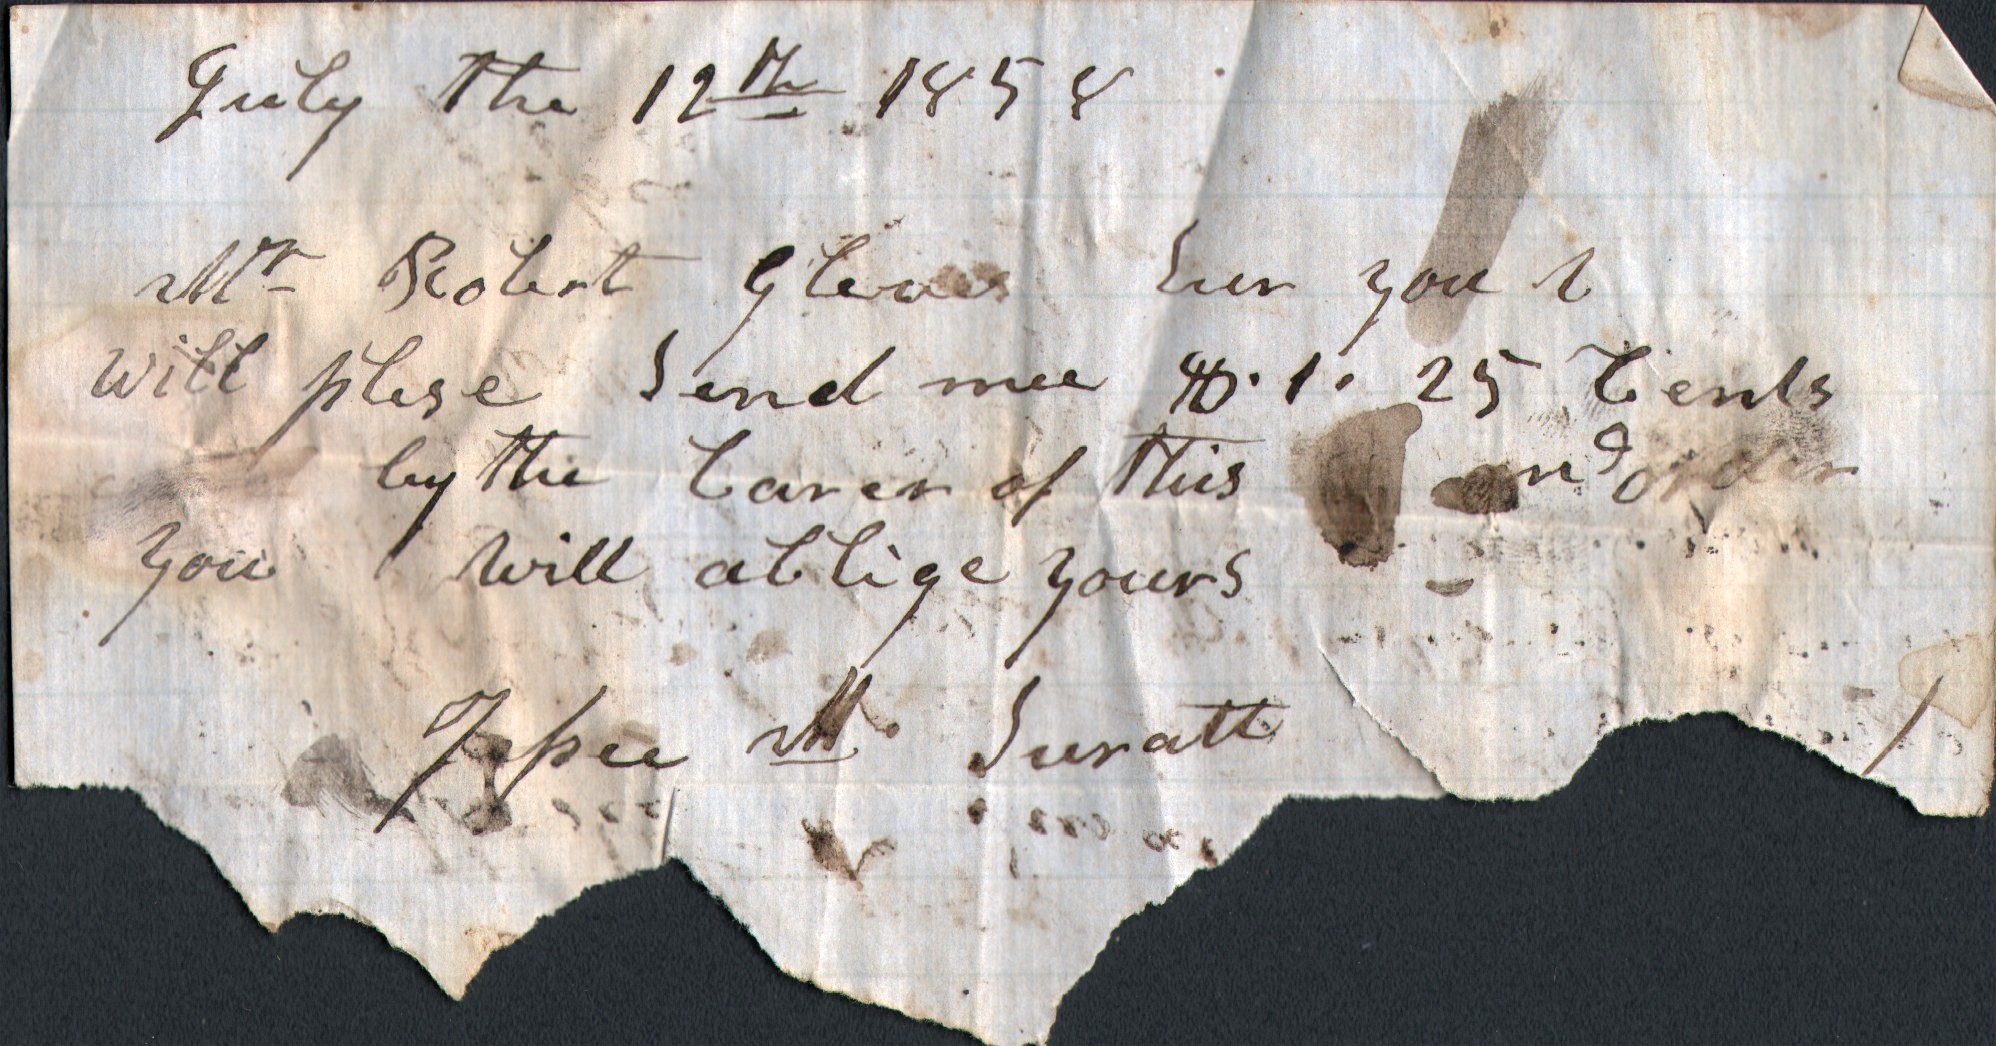 July the 12th 1858
Mr Robert Gleaves Sur you
will plese Send mee $.1. 25 Cents
by the barer of this and order
you will ablige yours
M. Suratt